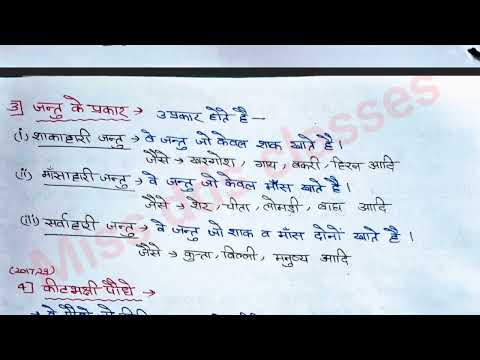 3] जन्तु के प्रकार → 3 प्रकार होते है —
(i) शाकाहारी जन्तु → वे जन्तु जो केवल शाक खाते है ।
जैसे → खरगोश, गाय, बकरी, हिरन आदि
(ii) माँसाहारी जन्तु → वे जन्तु जो केवल माँस खाते है ।
जैसे → शेर, चीता, लोमड़ी, बाघ आदि
(iii) सर्वाहारी जन्तु → वे जन्तु जो शाक व माँस दोनों खाते है ।
जैसे → कुत्ता, बिल्ली, मनुष्य आदि
(2017,23)
4] कीटभक्षी पौधे →